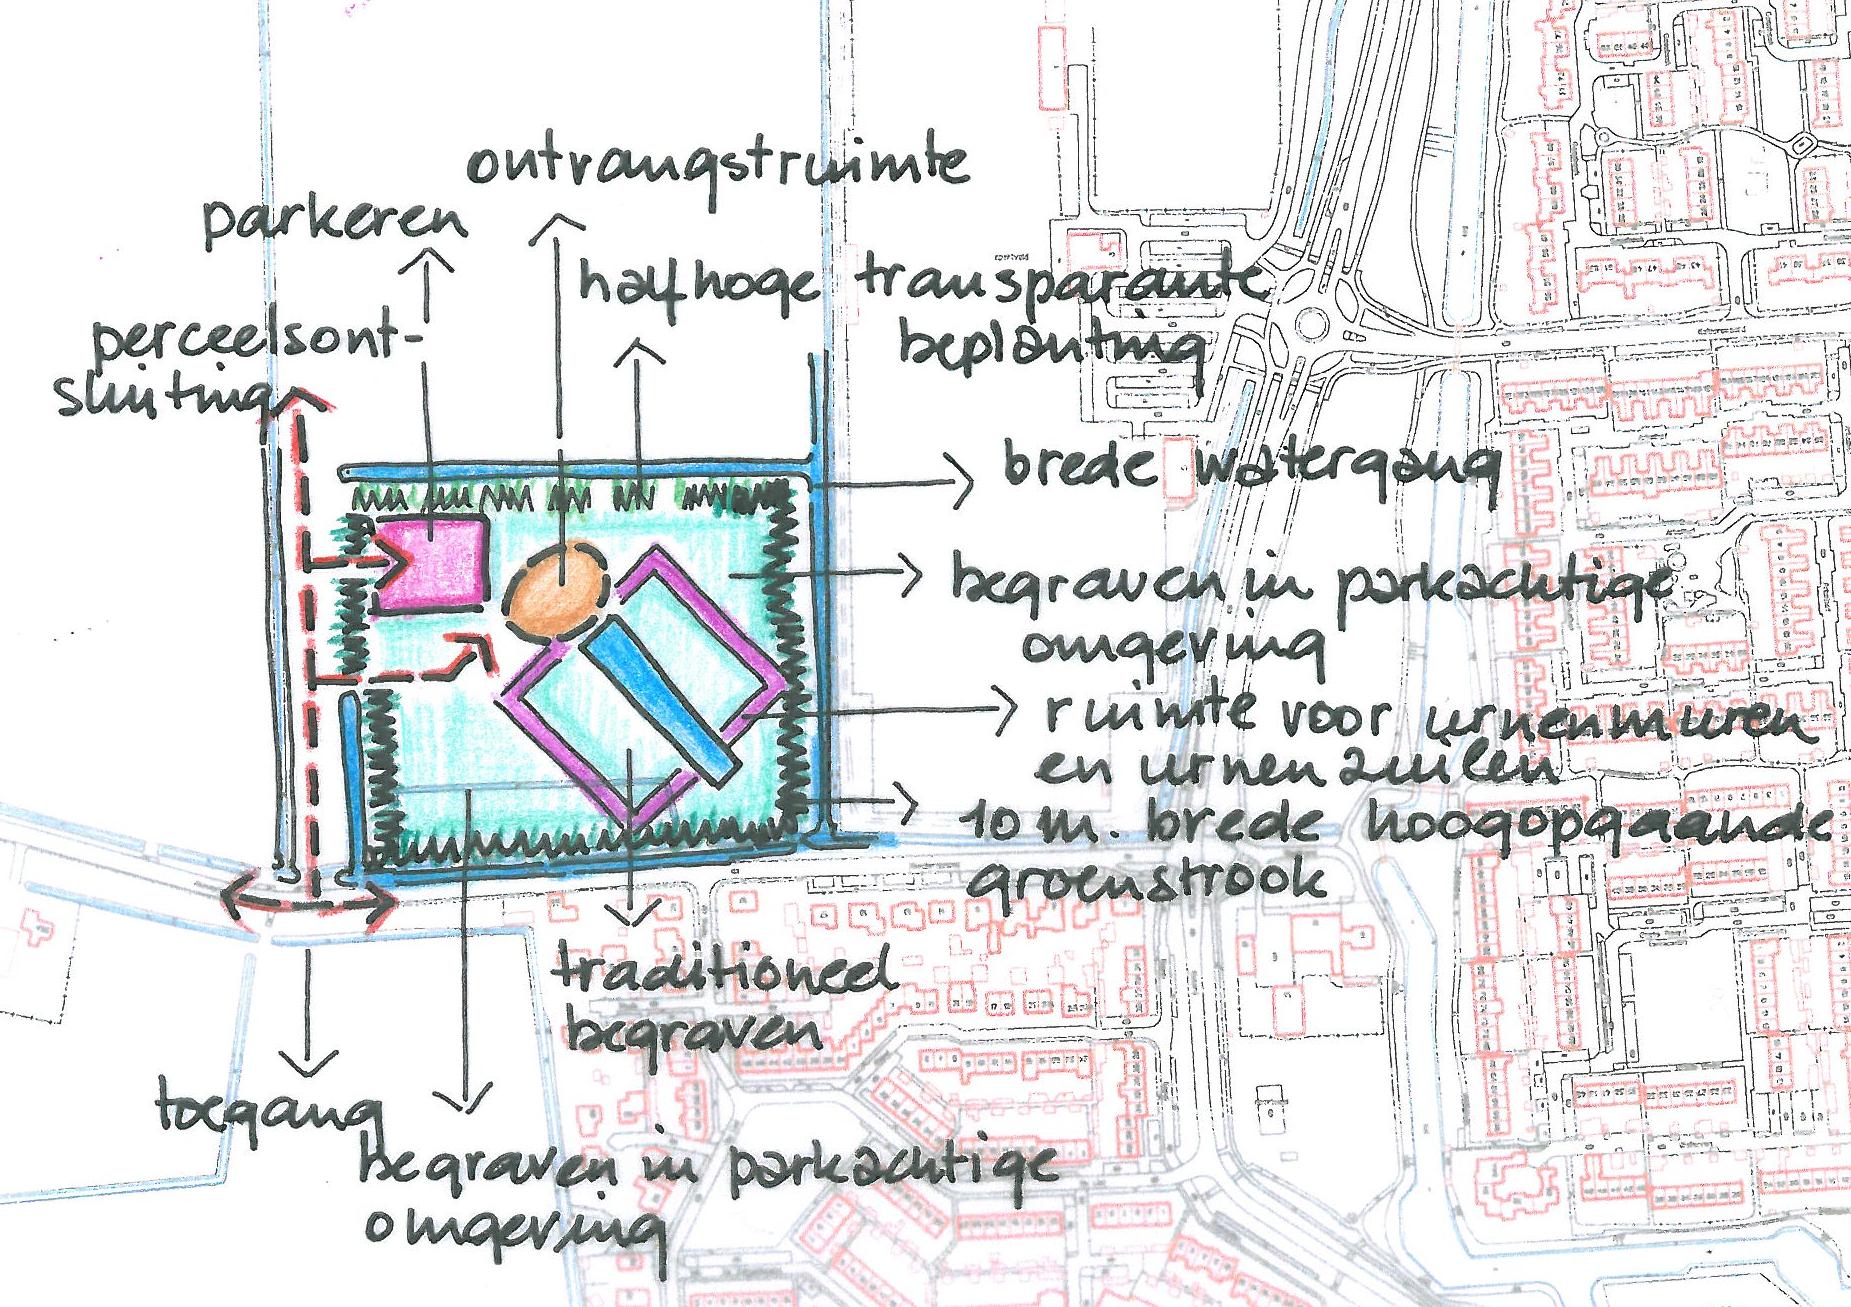 ontvangstruimte
parkeren
halfhoge transparante
beplanting
perceelsont-
sluiting
brede watergang
begraven in parkachtige
omgeving
ruimte voor urnenmuren
en urnenzuilen
10 m. brede hoogopgaande
groenstrook
traditioneel
begraven
toegang
begraven in parkachtige
omgeving